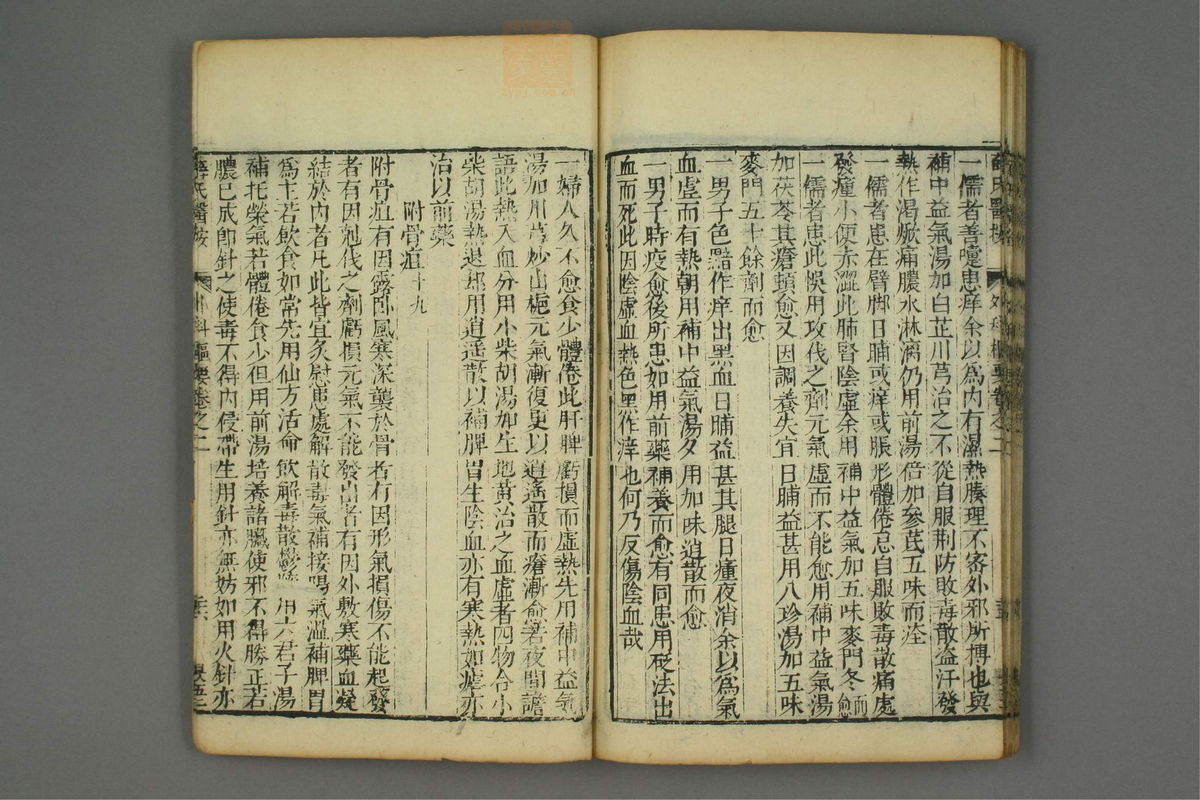 一儒者善嚏患痒余以爲內有濕熱腠理不密外邪所搏也與
補中益氣湯加白芷川芎治之不從自服荆防敗毒散盜汗發
熱作渴焮痛膿水淋漓仍用前湯倍加參芪五味而痊
一儒者患在臂脚日晡或痒或脹形體倦怠自服敗毒散痛處
發瘇小便赤澀此肺腎陰虛余用補中益氣加五味麥門冬而愈
一儒者患此悞用攻伐之劑元氣虛而不能愈用補中益氣湯
加茯苓其瘡頓愈又因調養失宜日晡益甚用八珍湯加五味
麥門五十餘劑而愈
一男子色黯作痒出黑血日晡益甚其腿日瘇夜消余以爲氣
血虛而有熱朝用補中益氣湯夕用加味逍散而愈
一男子時疫愈後所患如用前藥補養而愈有同患用砭法出
血而死此因陰虛血熱色黑作痒也何乃反傷陰血哉
一婦人久不愈食少體倦此肝脾虧損而虛熱先用補中益氣
湯加川芎炒山梔元氣漸復更以逍遙散而瘡漸愈若夜間譫
語此熱入血分用小柴胡湯加生地黃治之血虛者四物合小
柴胡湯熱退却用逍遥散以補脾胃生陰血亦有寒熱如瘧亦
治以前藥
附骨疽十九
附骨疽有因露卧風寒深襲於骨者有因形氣損傷不能起發
者有因剋伐之劑虧損元氣不能發出者有因外敷寒藥血凝
結於內者凡此皆宜灸慰患處解散毒氣補接陽氣溫補脾胃
爲主若飲食如常先用仙方活命飲解毒散鬱 用六君子湯
補托榮氣若體倦食少但用前湯培養諸臟使邪不得勝正若
膿已成卽針之使毒不得內侵帶生用針亦無妨如用火針亦
薛氏醫按 外科樞要卷之二